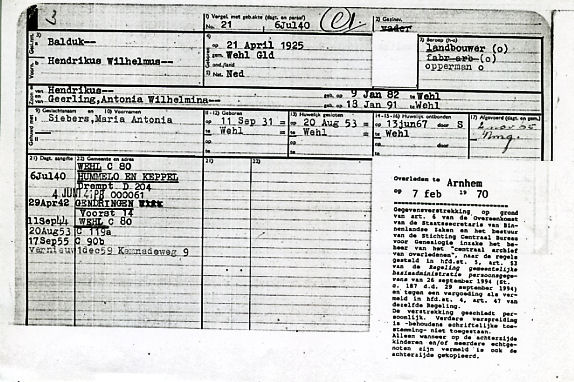 3
1) Vergel. met gebakte (dag. en paraaf)
No. 21 6Jul40
2) Gezinsv.
vader
3)
Balduk--
Hendrikus Wilhelmus--
4) op 21 April 1925
gem. Wehl Gld
ond./land
5) Nat. Ned
7) Beroep (h-o)
landbouwer (o)
fabr arb (o)
opperman o
Hendrikus-- geb. op 9 Jan 82 te Wehl
Geerling, Antonia Wilhelmina-- geb. op 13 Jan 91 te Wehl
9) Geslachtsnaam en 10) Voornamen
Siebers, Maria Antonia
11-12) Geboren
op 11 Sep 31 =
te Wehl =
13) Huwelijk gesloten
op 20 Aug 53 =
te Wehl =
14-15-16) Huwelijk ontbonden
op 13jun67 door S
te Wehl
17) Afgevoerd (dag. en gem.)
21) Dagt. aangifte 22) Gemeente en adres
21) 22)
WEHL C 80
6Jul40 HUMMELO EN KEPPEL
Drempt D 204
4 JUNI 000061
29Apr42 GENDRINGEN
Voorst 14
11Sep44 WEHL C 80
20Aug53 C 119a
17Sep55 C 90b
vernieuw 1dec59 Kannadeweg 9
Overleden te Arnhem
op 7 feb 19 70
Gegevensverstrekking op grond
van art. 6 van de Overeenkomst
van de Staatssecretaris van Bin-
nenlandse Zaken en het bestuur
van de Stichting Centraal Bureau
voor Genealogie inzake het be-
heer van het "centraal archief
van overledenen", naar de regels
gesteld in hfd.st. 5, art. 53
van de Regeling gemeentelijke
basisadministratie persoonsgege-
vens van 26 september 1994 (St.
c. 187 d.d. 29 september 1994)
en tegen een vergoeding als ver-
meld in hfd.st. 4, art. 47 van
dezelfde Regeling.
De verstrekking geschiedt per-
soonlijk. Verdere verspreiding
is -behoudens schriftelijke toe-
stemming- niet toegestaan.
Alleen wanneer op de achterzijde
kinderen en/of meerdere echtge-
noten zijn vermeld is ook de
achterzijde gekopieerd.